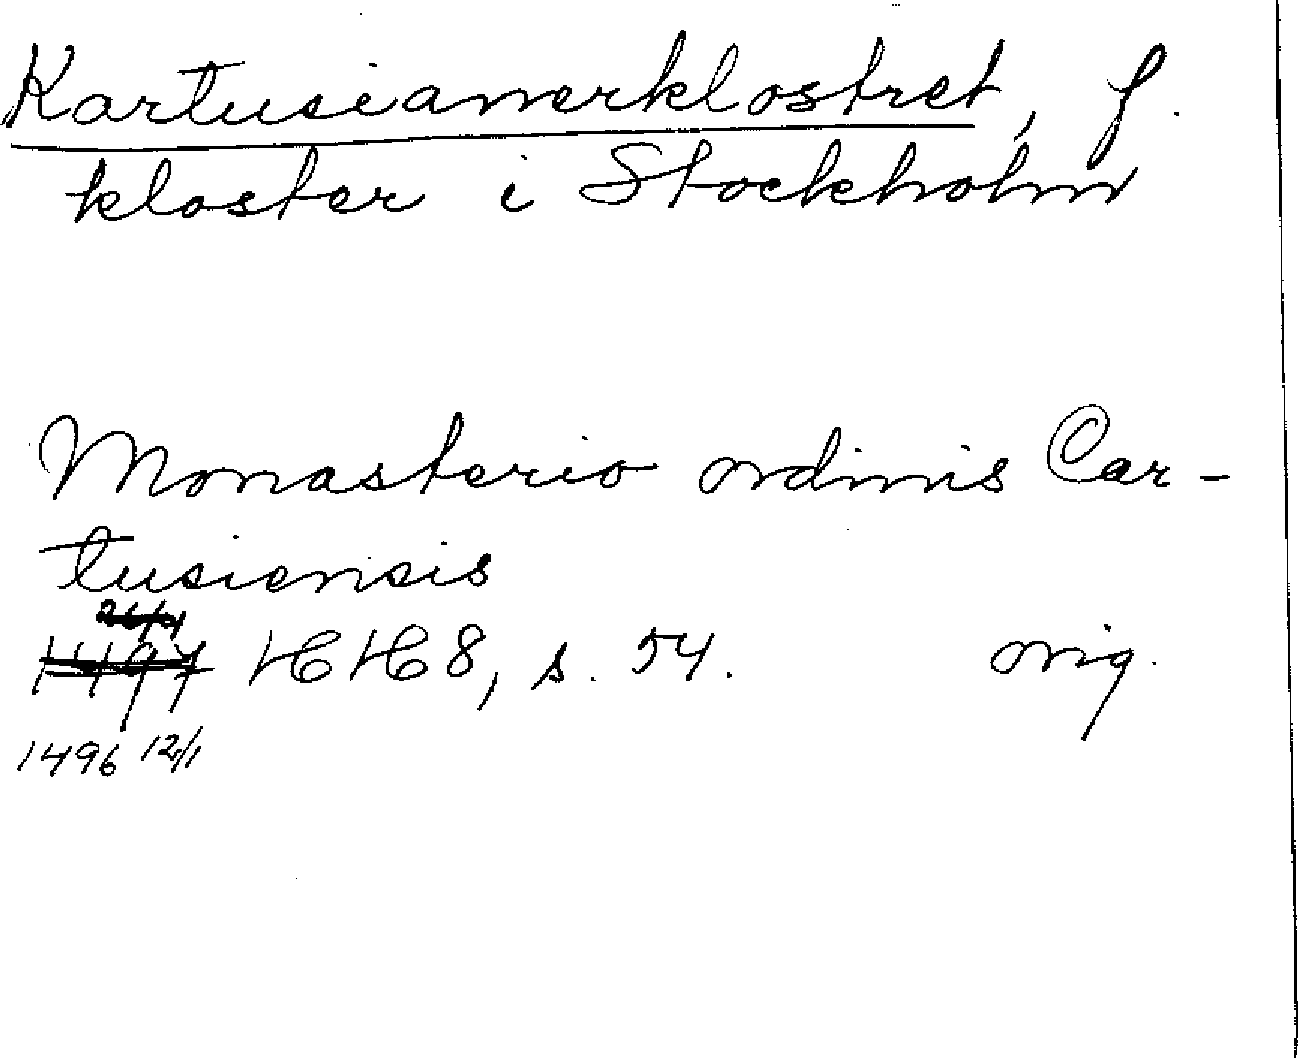 Kartusianerklostret, f.
kloster i Stockholm
Monasterio ordinis Car-
tusiensis
1497 HH 8, s. 54. orig.
1496 12/1